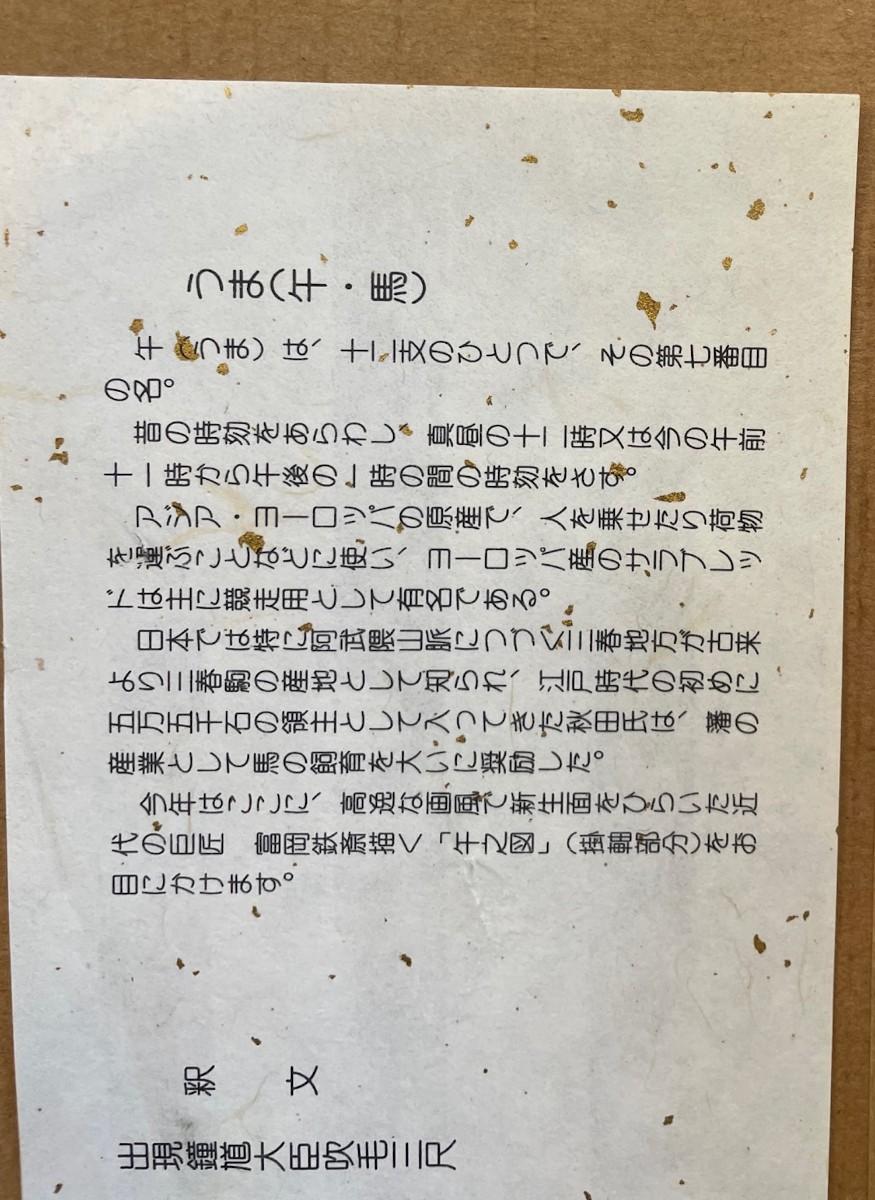 うま（午・馬）
午（うま）は、十二支のひとつで、その第七番目
の名。
昔の時刻をあらわし、真昼の十二時又は今の午前
十一時から午後の一時の間の時刻をさす。
アジア・ヨーロッパの原産で、人を乗せたり荷物
を運ぶことなどに使い、ヨーロッパ産のサラブレッ
ドは主に競走用として有名である。
日本では特に阿武隈山脈につづく三春地方が古来
より三春駒の産地として知られ、江戸時代の初めに
五万五千石の領主として入ってきた秋田氏は、藩の
産業として馬の飼育を大いに奨励した。
今年はここに、高逸な画風で新生面をひらいた近
代の巨匠　富岡鉄斎描く「午之図」（掛軸部分）をお
目にかけます。
釈　文
出現鐘馗大臣吹毛三尺